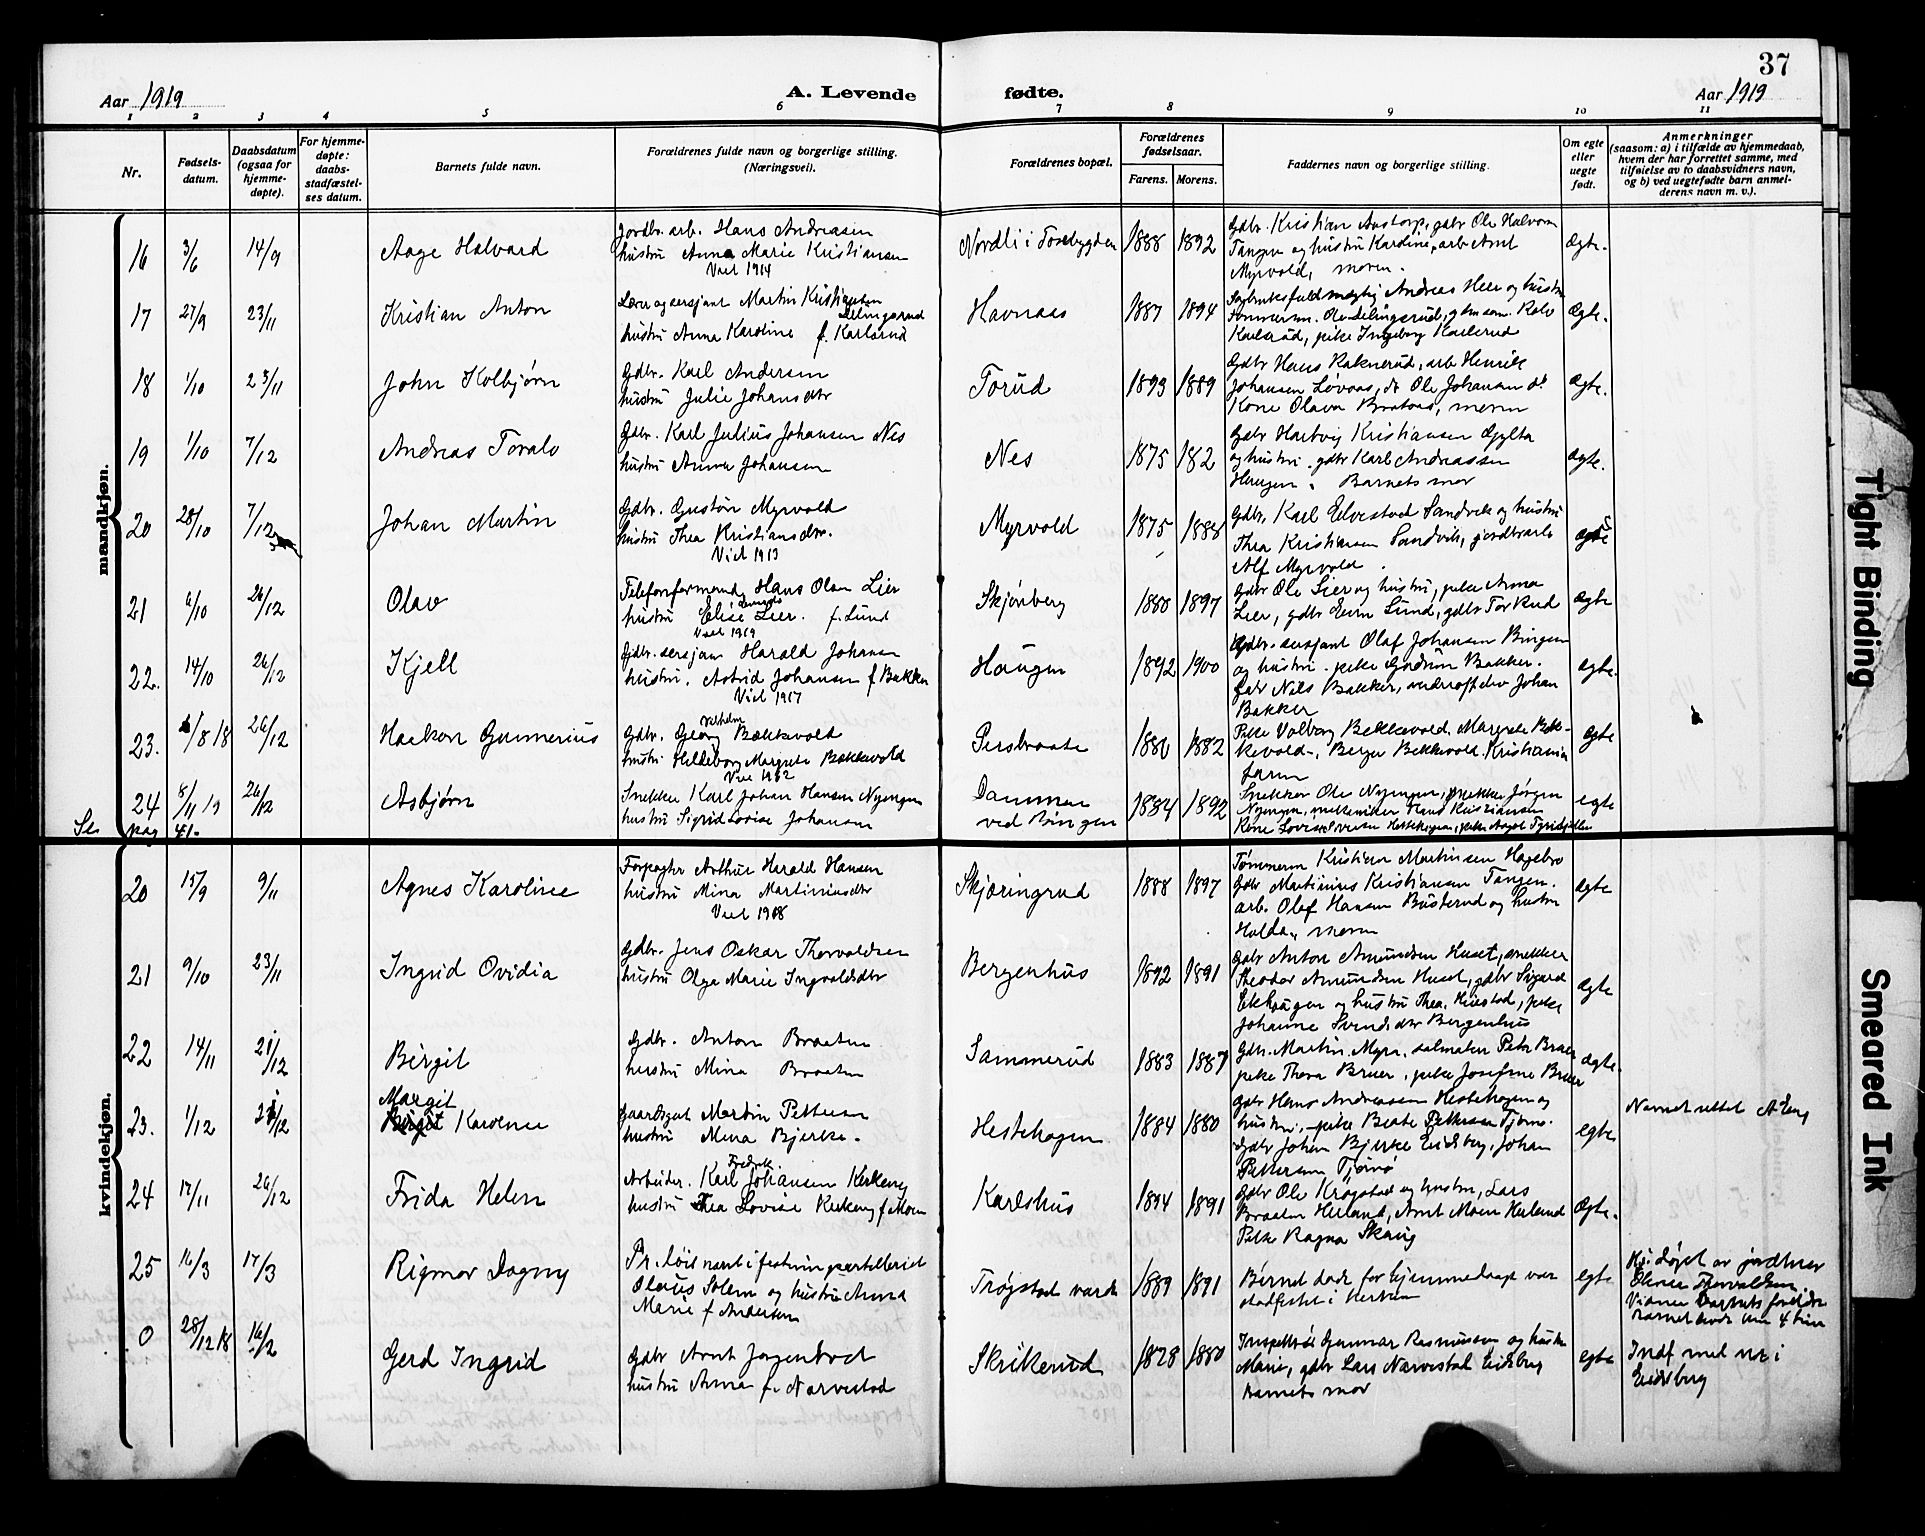 37
Aar 1919
A. Levende fødte.
Aar 1919
1 2 3 4 5 6 7 8 9 10 11
Nr.
Fødsels-
datum.
Daabsdatum
(ogsaa for
hjemme-
døpte).
For hjemme-
døpte:
daabs-
stadfæstel-
ses datum.
Barnets fulde navn.
Forældrenes fulde navn og borgerlige stilling.
(Næringsvei).
Forældrenes bopæl.
Forældrenes
fødselsaar.
Farens. Morens.
Faddernes navn og borgerlige stilling.
Om egte
eller
uegte
født.
Anmerkninger
(saasom: a) i tilfælde av hjemmedaab,
hvem der har forrettet samme, med
tilføielse av to daabsvidners navn,
og b) ved uegtefødte barn anmel-
derens navn m. v.).
mandkjøn.
16 3/6 14/9 Aage Halvard
Jordbr. arb. Hans Andreasen
hustru Anna Marie Kristiansen
Viet 1914
Nordli i Torebygden 1888 1892
Gdbr. Kristian Austorp, gdbr Ole Halvorsen
Tangen og hustru Kardine, arb. Arnt
Myrvold, moren.
Ægte.
17 27/9 23/11 Kristian Anton
Lærer og sersjant Martin Kristiansen
hustru Anna Karoline f. Karlsrud
Havnaas 1887 1894
Andreas Heer og hustru
Karlsrud, pike Ingeborg Karlsrud
Ægte.
18 1/10 23/11 John Kolbjørn
Gdbr. Karl Andersen
hustru Julie Johansdtr
Torud 1893 1889
Gdbr Hans Raknerud, arb Henrik
Johansen Løvaas, do Ole Johansen do
Kone Olava Braatas, moren
Ægte.
19 1/10 7/12 Andreas Toralv
Gdbr. Karl Julius Johansen Nes
hustru Anna Johansen
Nes 1875 182
Gdbr Hartvig Kristiansen Gylta
og hustru. gdbr Karl Andreassen
Haugen. Barnets mor
Ægte.
20 28/10 7/12 Johan Martin
Gdbr. Gustav Myrvold
hustru Thea Kristiansdtr.
Viet 1913
Myrvold 1875 1888
Gdbr. Karl Edvestad Sandvik og hustru
Thea Kristiansen Sandvik, jordbrarb
Alf Myrvold.
Ægte
21 9/10 26/12 Olav
Telefonformand Hans Olan Lier
hustru Elise Lier. f. Lund
Viet 1919
Skjønberg 1888 1897
Gdbr Ole Lier og hustru, pike Anna
Lier, gdbr Even Lund, gdbr Tor Rud
Ægte
22. 14/10 26/12 Kjell
Gdbr. sersjant Harald Johansen
hustru. Astrid Johansen f Bakken
Viet 1917
Haugen 1892 1900
Gdbr. sersjant Olaf Johansen Bingen
og hustru. pike Gudrun Bakker.
gdbr Nils Bakker, Johan
Bakker
Ægte.
23. /8 18 26/12 Haakon Gunnerius
Gdbr. Georg Vilhelm Bækkevold
hustru Hildeborg Margrete Bækkevold
Viet 1912
Persbraate 1880 1882
Pike Valborg Bekkevold. Margrete Bek-
kevold, Birger Bekkevold Kristiania
faren
Ægte
24 8/11 19 26/12 Asbjørn
Snekker Karl Johan Hansen Nyengen
hustru Sigrid Lovise Johansen
Dammen
ved Bingen 1884 1892
Snekker Ole Nyengen, snekker Jørgen
Nyengen, mekaniker Hans Kristiansen
egte
Se pag 41.
kvindekjøn.
20 15/9 9/11 Agnes Karoline
Forpagter Arthur Harald Hansen
hustru Mina Martiniusdtr
Viet 1918
Skjæringrud 1888 1897
Tømmerm Kristian Martinsen Hagebro
Gdbr Martinius Kristiansen Tangen.
arb. Olaf Hansen Busterud og hustru
Hulda, moren
Ægte
21 9/10 23/11 Ingrid Ovidia
Gdbr. Jens Oskar Thorvaldsen
hustru Olga Marie Ingvaldsdtr
Bergenhus 1892 1891
Gdbr Anton Amundsen Huset, snekker
Theodor Amundsen Huset, gdbr Sigurd
Eikhaugen og hustru Thea. Huestad, pike
Johanne Svendsdtr Bergenhus
Ægte
22 14/11 21/12 Birgit
Gdbr. Anton Braaten
hustru Mina Braaten
Sammerud 1883 1887
Gdbr. Martin Myra, salmaker Petr Bruer
pike Thora Bruer, pike Josefine Bruer
Ægte.
23. 1/12 21/12 Margit
Birgit Karoline
Gaardsgut Martin Pettersen
hustru Mina Bjerke.
Hestehagen 1884 1880
Gdbr Hans Andreassen Hestehagen og
hustru, pike Beate Pettersen Tjørnø.
Gdbr Johan Bjerke Eidsberg, Johan
Pettersen Tjørnø
egte
Navnet rettet
24 17/11 26/12 Frida Helen
Arbeider. Karl Fredrik Johansen Kirkeng
hustru Thea Lovise Kirkeng f Moen
Karlshus 1894 1891
Gdbr Ole Krogstad og hustru, Lars
Braaten Herland, Arnt Moen Herland
Pike Ragna Skaug
Ægte.
25 16/3 17/3 Rigmor Dagny
Pr. løitnant i festningsartilleriet
Olaus Solem og hustru Anna
Marie f Andersen
Trøgstad varde 1889 1891
Barnet døde før hjemmedaap var
stadfestet i kirken
egte
Hj. døpt av jordmor
Thorvaldsen,
Vidner barnets forældre
Barnet døde um 4 tim
0 28/12 18 16/2 Gerd Ingrid
Gdbr Arnt Jørgentvet
hustru Anna f. Narvestad
Skrikerud 1878 1880
Inspektør Gunnar Rasmussen og hustru
Marie, gdbr Lars Narvestad Eidsberg
barnets mor
egte
Indf med nr i
Eidsberg
Tight Binding
Smeared Ink